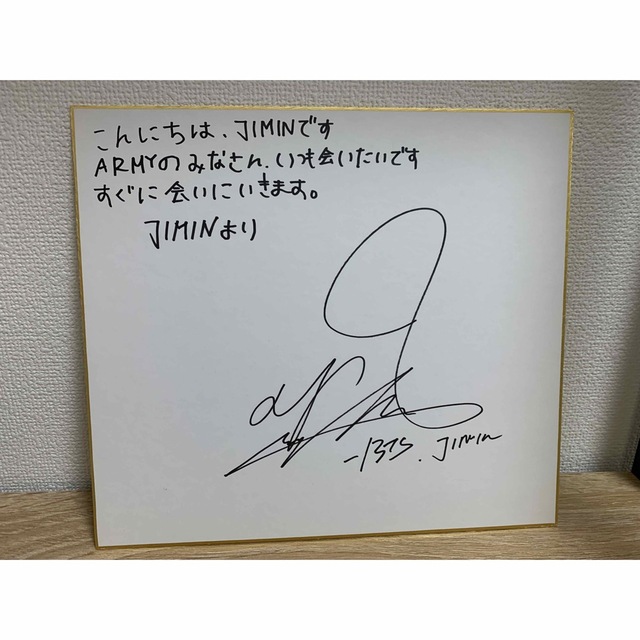 こんにちは、JIMINです
ARMYのみなさん、いつも会いたいです
すぐに会いにいきます。
JIMINより
-BTS. JIMIN